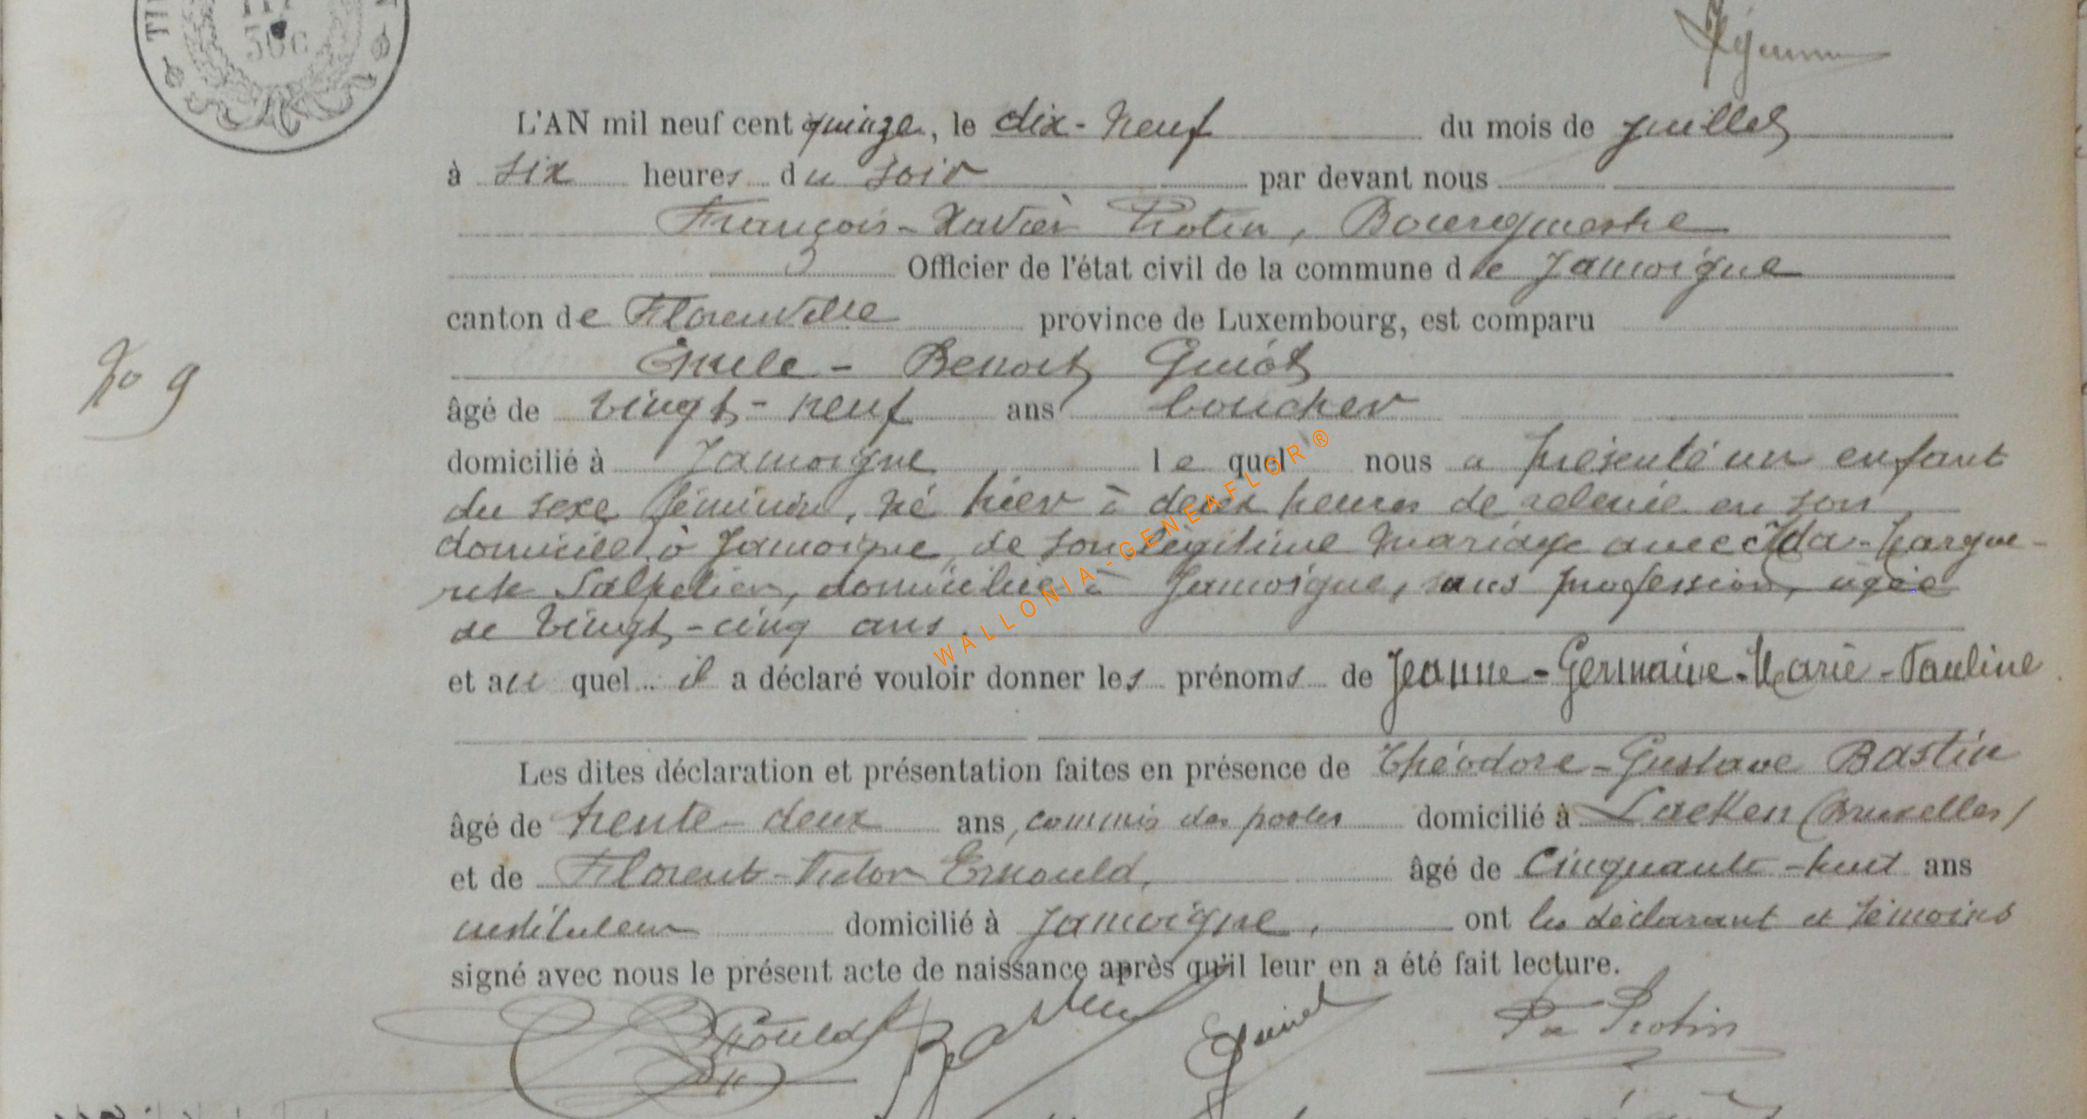 50c
L'AN mil neuf cent quinze, le dix-neuf du mois de juillet
à six heures du soir par devant nous
François-Xavier Protin, Bourgmestre
Officier de l'état civil de la commune de Jamoigne
canton de Florenville province de Luxembourg, est comparu
Emile-Benoit Guiot
No 9
âgé de vingt-neuf ans boucher
domicilié à Jamoigne lequel nous a présenté un enfant
du sexe féminin, né hier à deux heures de relevée en son
domicile à Jamoigne, de son légitime mariage avec Ida-Margue-
rite Salpetier, domiciliée à Jamoigne, sans profession, âgée
de vingt-cinq ans.
et auquel il a déclaré vouloir donner les prénoms de Jeanne-Germaine-Marie-Pauline.
Les dites déclaration et présentation faites en présence de Théodore-Gustave Bastin
âgé de trente-deux ans, commis des postes domicilié à Laeken (Bruxelles)
et de Florent-Victor Ernould, âgé de Cinquante-huit ans
instituteur domicilié à Jamoigne, ont les déclarant et témoins
signé avec nous le présent acte de naissance après qu'il leur en a été fait lecture.
Bastin EGuiot Protin
WALLONIA-GENEAFLOR®